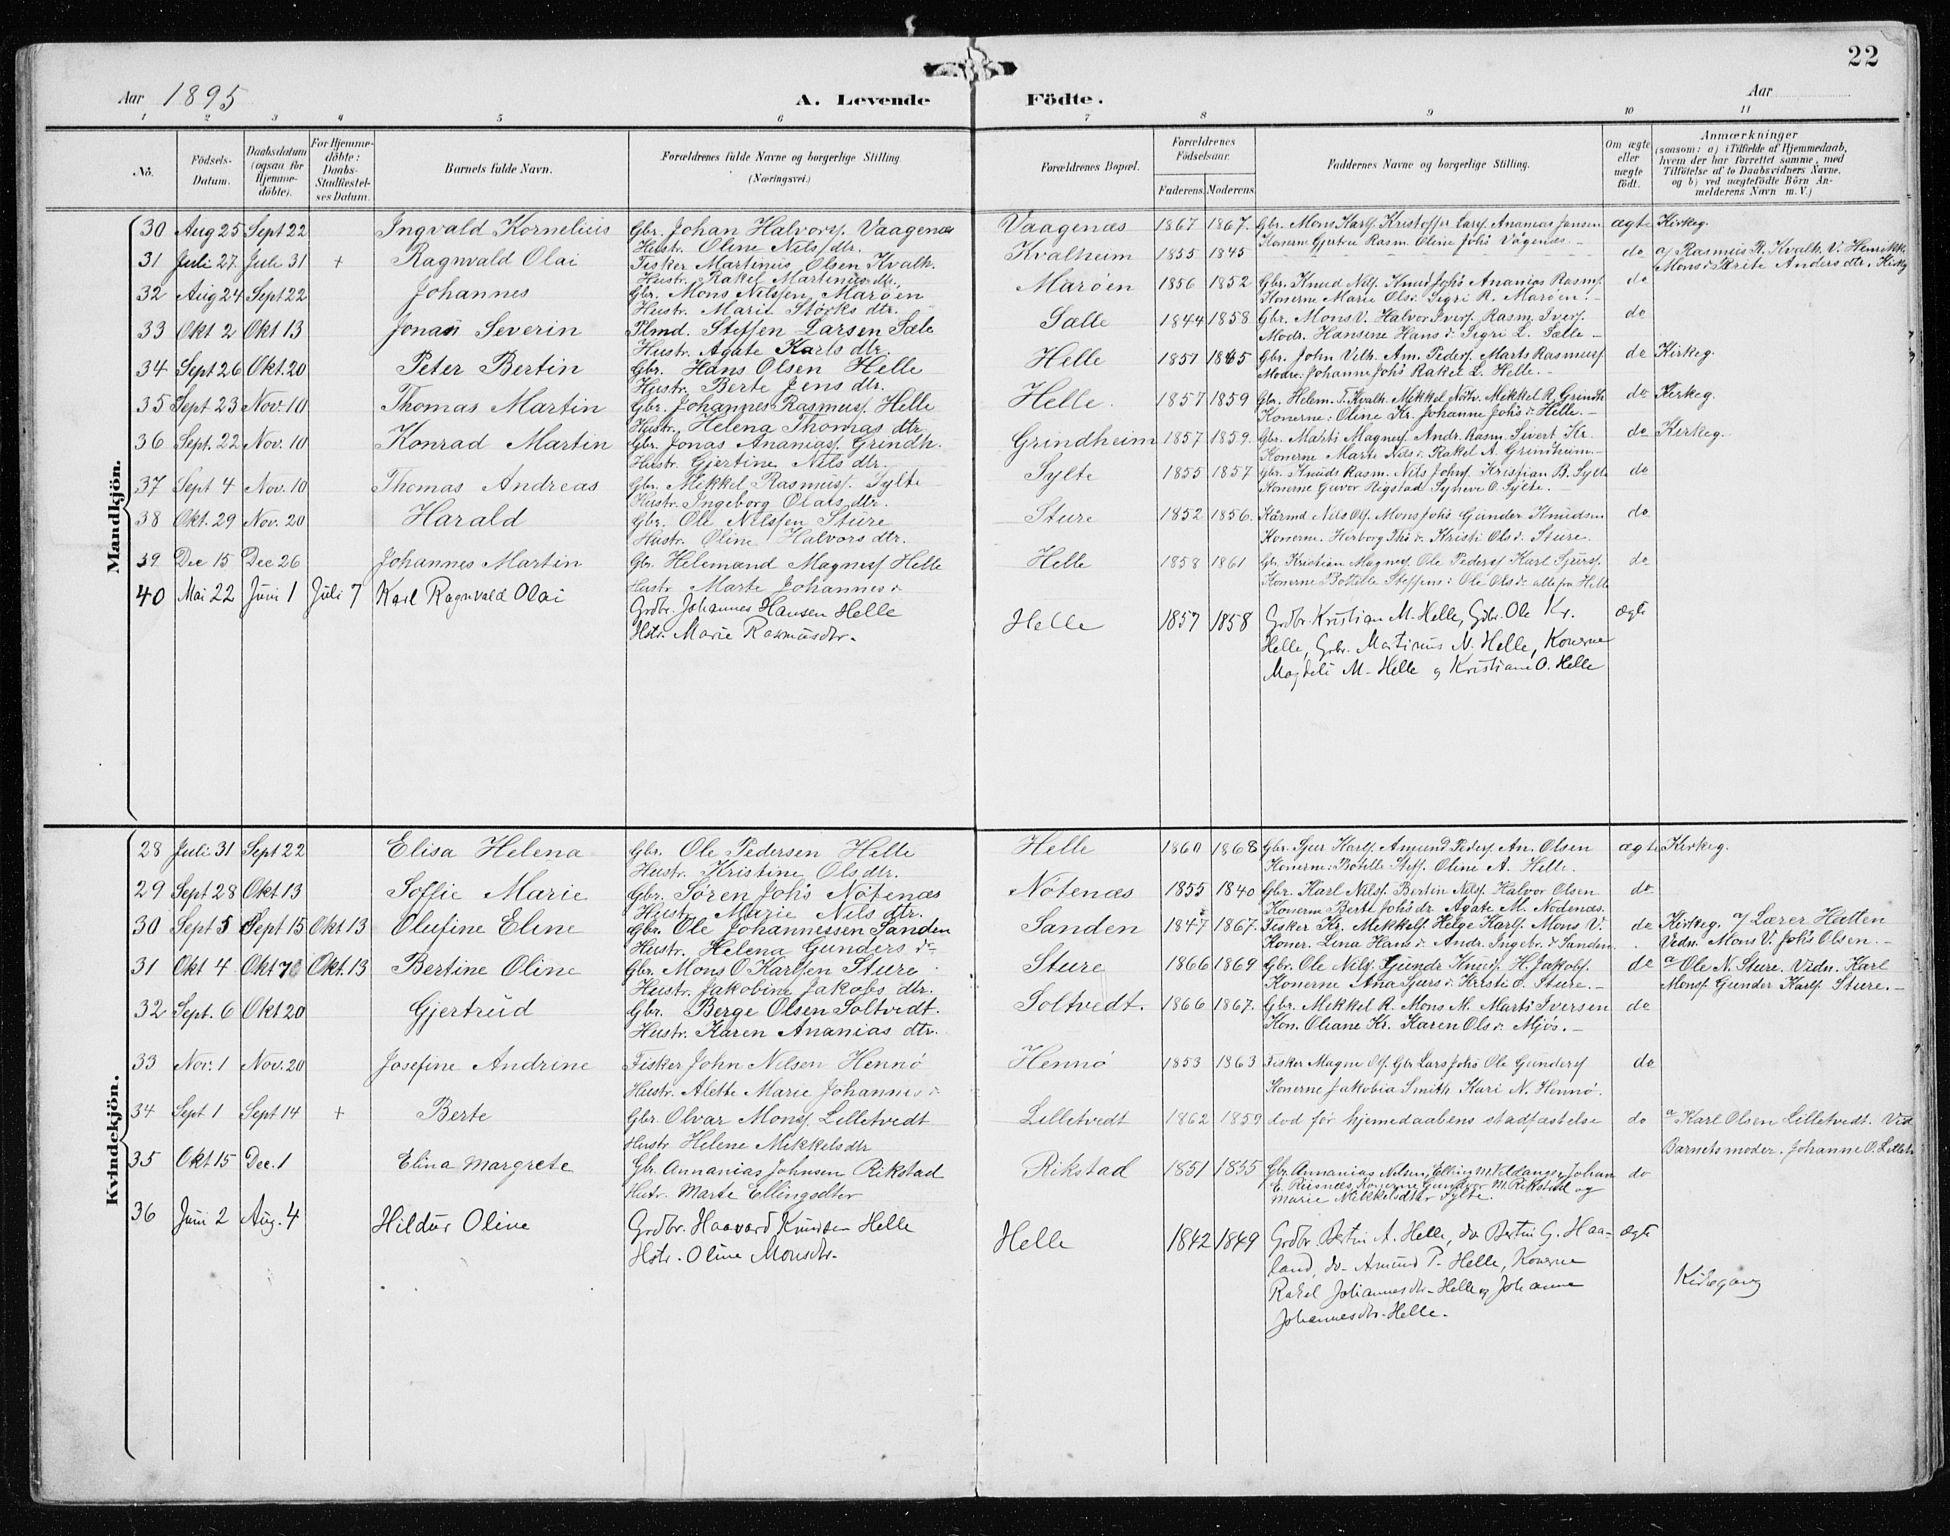 22
Aar 1895 A. Levende Födte. Aar
1 2 3 4 5 6 7 8 9 10 11
No. Födsels-Datum. Daabsdatum (ogsaa for Hjemme-döbte). For Hjemme-döbte: Daabs-Stadfæstel-ses Datum. Barnets fulde Navn. Forældrenes fulde Navne og borgerlige Stilling. (Næringsvei.) Forældrenes Bopæl. Forældrenes Födselsaar. Faderens. Moderens. Faddernes Navne og borgerlige Stilling. Om ægte eller uægte födt. Anmærkninger (saasom: a) i Tilfælde af Hjemmedaab, hvem der har forrettet samme, med Tilföielse af to Daabsvidners Navne, og b) ved uægtefödte Börn An-melderens Navn m. V.)
Mandkjön.
30 Aug 25 Sept 22 Ingvald Kornelius Gbr. Johan Halvors. Vaagenæs Vaagenæs 1867 1867. Gbr. Mons Karls. Kristoffer Lars. Ananias Jansen ægte Kirkeg.
Hustr. Oline Nils dtr. Konerne Gjertru Rasm. Oline Johs Vågenes. –
31 Juli 27 Juli 31 + Ragnvald Olai Fisker Martinus Olsen Kvalh. Kvalheim 1855 1845 do a/ Rasmus R. Kvalh. V. Henrikk
Hustr. Rakel Martinus dtr. Mons d. Brite Anders dtr. Kirkeg
32 Aug 24 Sept 22 Johannes Gbr. Mons Nilssen Marøen Marøen 1856 1852 Gbr. Knud Nils. Knud Johs Ananias Rasms. do
Hustr. Marie Störks dtr. Konerne Marie Ols d. Sigri R. Marøen. –
33 Okt 2 Okt 13 Jonas Severin Plmd. Steffen Larsen Sæle Sælle 1844 1858 Gbr. Mons V. Halvor Ivers. Rasm. Ivers. do
Hustr. Agate Karls dtr. Modr. Hansine Hans d. Sigri L. Sælle –
34 Sept 26 Okt. 20 Peter Bertin Gbr. Hans Olsen Helle Helle 1851 1865 Gbr. John Vilh. Am. Peders. Marts Rasmus. do Kirkeg.
Hustr. Berte Jens dtr. Modre. Johanne Johs Rakel L. Helle. –
35 Sept 23 Nov. 10 Thomas Martin Gbr. Johannes Rasmus. Helle Helle. 1857 1859 Gbr. Helem. T. Kvalh. Mikkel Nöhv. Mikkel R. Grindh do Kirkeg.
Hustr. Helena Thomas dtr. Konerne: Oline Kr. Johanne Johs d. Helle. –
36 Sept. 22 Nov. 10 Konrad Martin Gbr. Jonas Ananias. Grindh. Grindheim 1857 1859. Gbr. Marts Magnes. Andr. Rasm. Sivert Kr. do Kirkeg.
Hustr. Gjertine Nils dtr. Konerne Marte Nils d. Rakel A. Grindheim –
37 Sept 4 Nov. 10 Thomas Andreas Gbr. Mikkel Rasmus. Sylte Sylte 1855 1857 Gbr. Knuds Rasm. Nils Johs. Kristian B. Sylte do
Hustr. Ingeborg Olais dtr. Konerne Guvor Rigstad Synneve O. Sylte. –
38 Okt. 29 Nov. 20 Harald Gbr. Ole Nilssen Sture Sture 1852 1856. Kårmd Nils Ols. Mons Johs Gunder Knudsen do
Hustr. Oline Halvors dtr. Konerne. Herborg Ths d. Kristi Ols d. Sture.
39 Dec 15 Dec 26 Johannes Martin Gbr. Helemand Magnes. Helle Helle 1858 1861 Gbr. Kristian Magnes. Ole Peders. Karl Sjurs. do
Hustr. Marte Johannes d. Konerne Botille Steffens d. Ole Ols d. alle fra Helle
40 Mai 22 Juni 1 Juli 7 Karl Ragnvald Olai Grdbr. Johannes Hansen Helle Helle 1857 1858 Grdbr. Kristian M. Helle, Gdbr. Ole Kr. ægte
Hstr. Marie Rasmusdtr. Helle, Grbr. Martinus N. Helle, Konerne
Magdeli M. Helle og Kristiane O. Helle
Kvindekjön.
28 Juli 31 Sept 22 Elisa Helena Gbr. Ole Pedersen Helle Helle 1860 1868 Gbr. Sjur Karls. Amund Peders. An. Olsen ægte Kirkeg.
Hustr. Kristine Ols dtr. Konerne: Botille Stefs. Oline A. Helle.
29 Sept 28 Okt 13 Soffie Marie Gbr. Sören Johs Nötenæs Nötenæs 1855 1840 Gbr. Karl Nils. Bertin Nils. Halvor Olsen do
Hustr. Marie Nils dtr. Konerne Berte Johs dr Agate M. Nodenæs.
30 Sept 5 Sept 15 Okt 13 Olufine Eline Gbr. Ole Johannessen Sanden Sanden 1847 1867. Fisker Kr. Mikkels. Helge Karls. Mons V. do Kirkeg. a/ Lærer Hatten
Hustr. Helena Gunders d. Koner. Lina Hans d. Andr. Ingebr. d. Sanden Vedn. Mons V. Johs Olsen. –
31 Okt 4 Okt 7 Okt. 13 Bertine Oline Gbr. Mons O Karlsen Sture Sture 1866 1869 Gbr. Ole Nils. Gundr Knuds. H. Jakobs. do a/ Ole N. Sture. Vidn. Karl
Hustr. Jakobine Jakobs dtr. Konerne Ana Sjurs d. Kristi O. Sture. – Mons. Gunder Karls. Sture. –
32 Sept. 6 Okt 20 Gjertrud Gbr. Berge Olsen Soltvedt. Soltvedt. 1866 1867. Gbr. Mekkel R. Mons M. Marts Iversen do
Hustr. Karen Ananias dtr. Kon. Oliane Kr. Karen Ols d. Mjös. –
33 Nov. 1 Nov. 20 Josefine Andrine Fisker John Nilsen Hennö Hennö 1853 1863 Fisker Magne Ols. Gbr Lars Johs Ole Gunders. do
Hustr. Alette Marie Johannes d. Konerne Jakobia Smith Kari N. Hennö.
34 Sept 1 Sept 14 + Berte Gbr. Olvar Mons. Lilletvedt Lilletvedt 1862 1859 död för hjemedaabens stadfæstelse do a/ Karl Olsen Lilletvedt. Vid
Hustr Helene Mikkelsdtr Barnets moder. Johanne O. Lilletv
35 Okt 15 Dec. 1 Elina Margrete Gbr. Annanias Johnsen Rikstad Rikstad 1851 1855 Gbr. Annanias Nilsen, Elling M Veldanger, Johan do
Hustr. Marte Ellingsdtter E. Risnæs, Konerne Gundvor M. Rikstad og
Marie Nikkelsdtter Sylte.
36 Juni 2 Aug. 4 Hildur Oline Grdbr. Haavard Knudsen Helle Helle 1842 1849 Grdbr. Bertin A. Helle, do Bertin G. Haa- ægte
Hstr. Oline Monsdtr. land, do. Amund P. Helle, Konerne
Rakel Johannesdtr. Helle og Johanne Kirkegang
Johannesdtr. Helle.